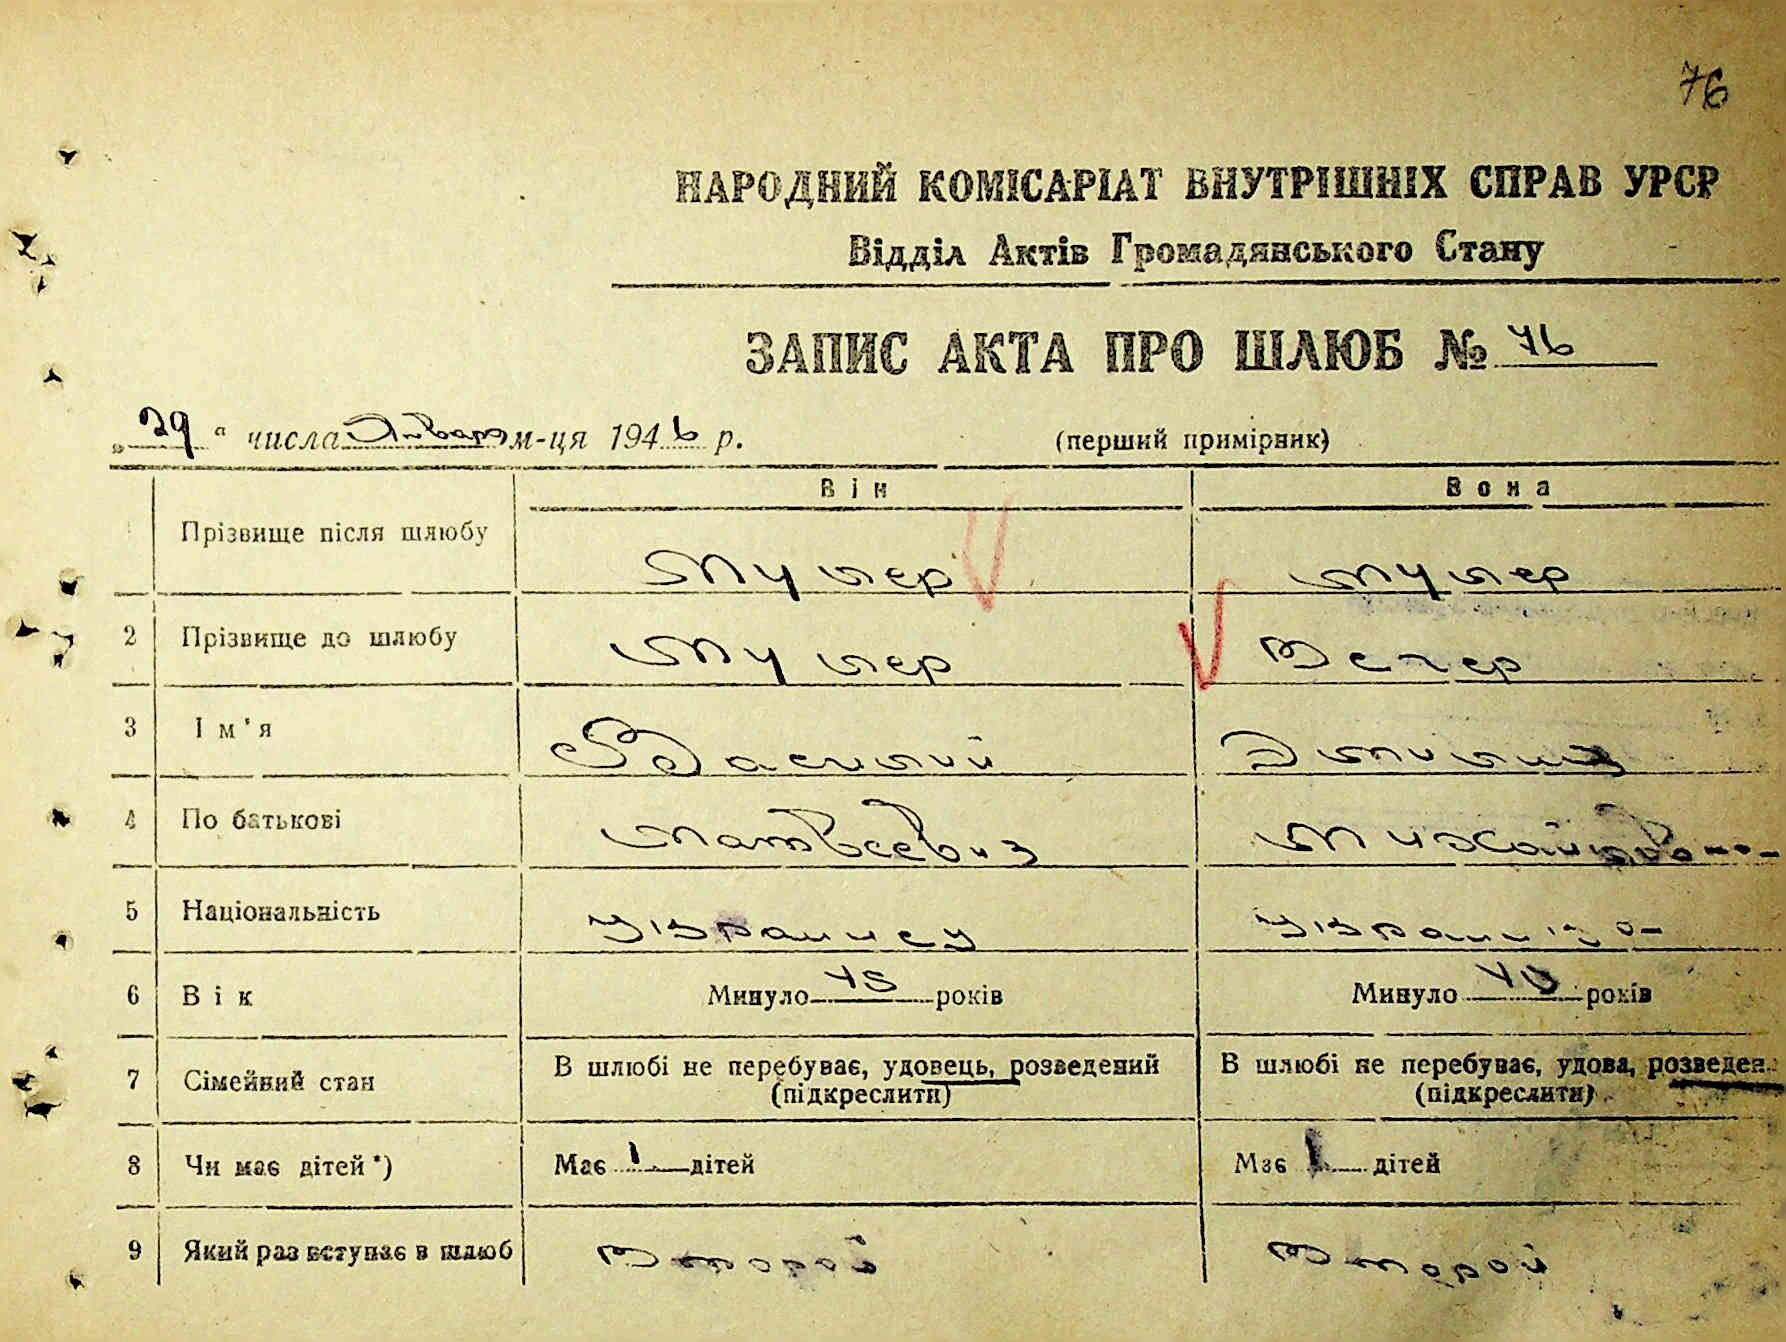 76
НАРОДНИЙ КОМІСАРІАТ ВНУТРІШНІХ СПРАВ УРСР
Відділ Актів Громадянського Стану
ЗАПИС АКТА ПРО ШЛЮБ № 76
„29“ числа Января м-ця 1946 р. (перший примірник)
Він Вона
Прізвище після шлюбу Мулер Мулер
2 Прізвище до шлюбу Мулер Вегер
3 Ім'я Василий
4 По батькові Матвеевич Михайловна
5 Національність Украинец Украинка
6 Вік Минуло 45 років Минуло років
7 Сімейний стан В шлюбі не перебуває, удовець, розведений В шлюбі не перебуває, удова, розведен
(підкреслити) (підкреслити)
8 Чи має дітей *) Має 1 дітей Має 1 дітей
9 Який раз вступає в шлюб Второй Второй